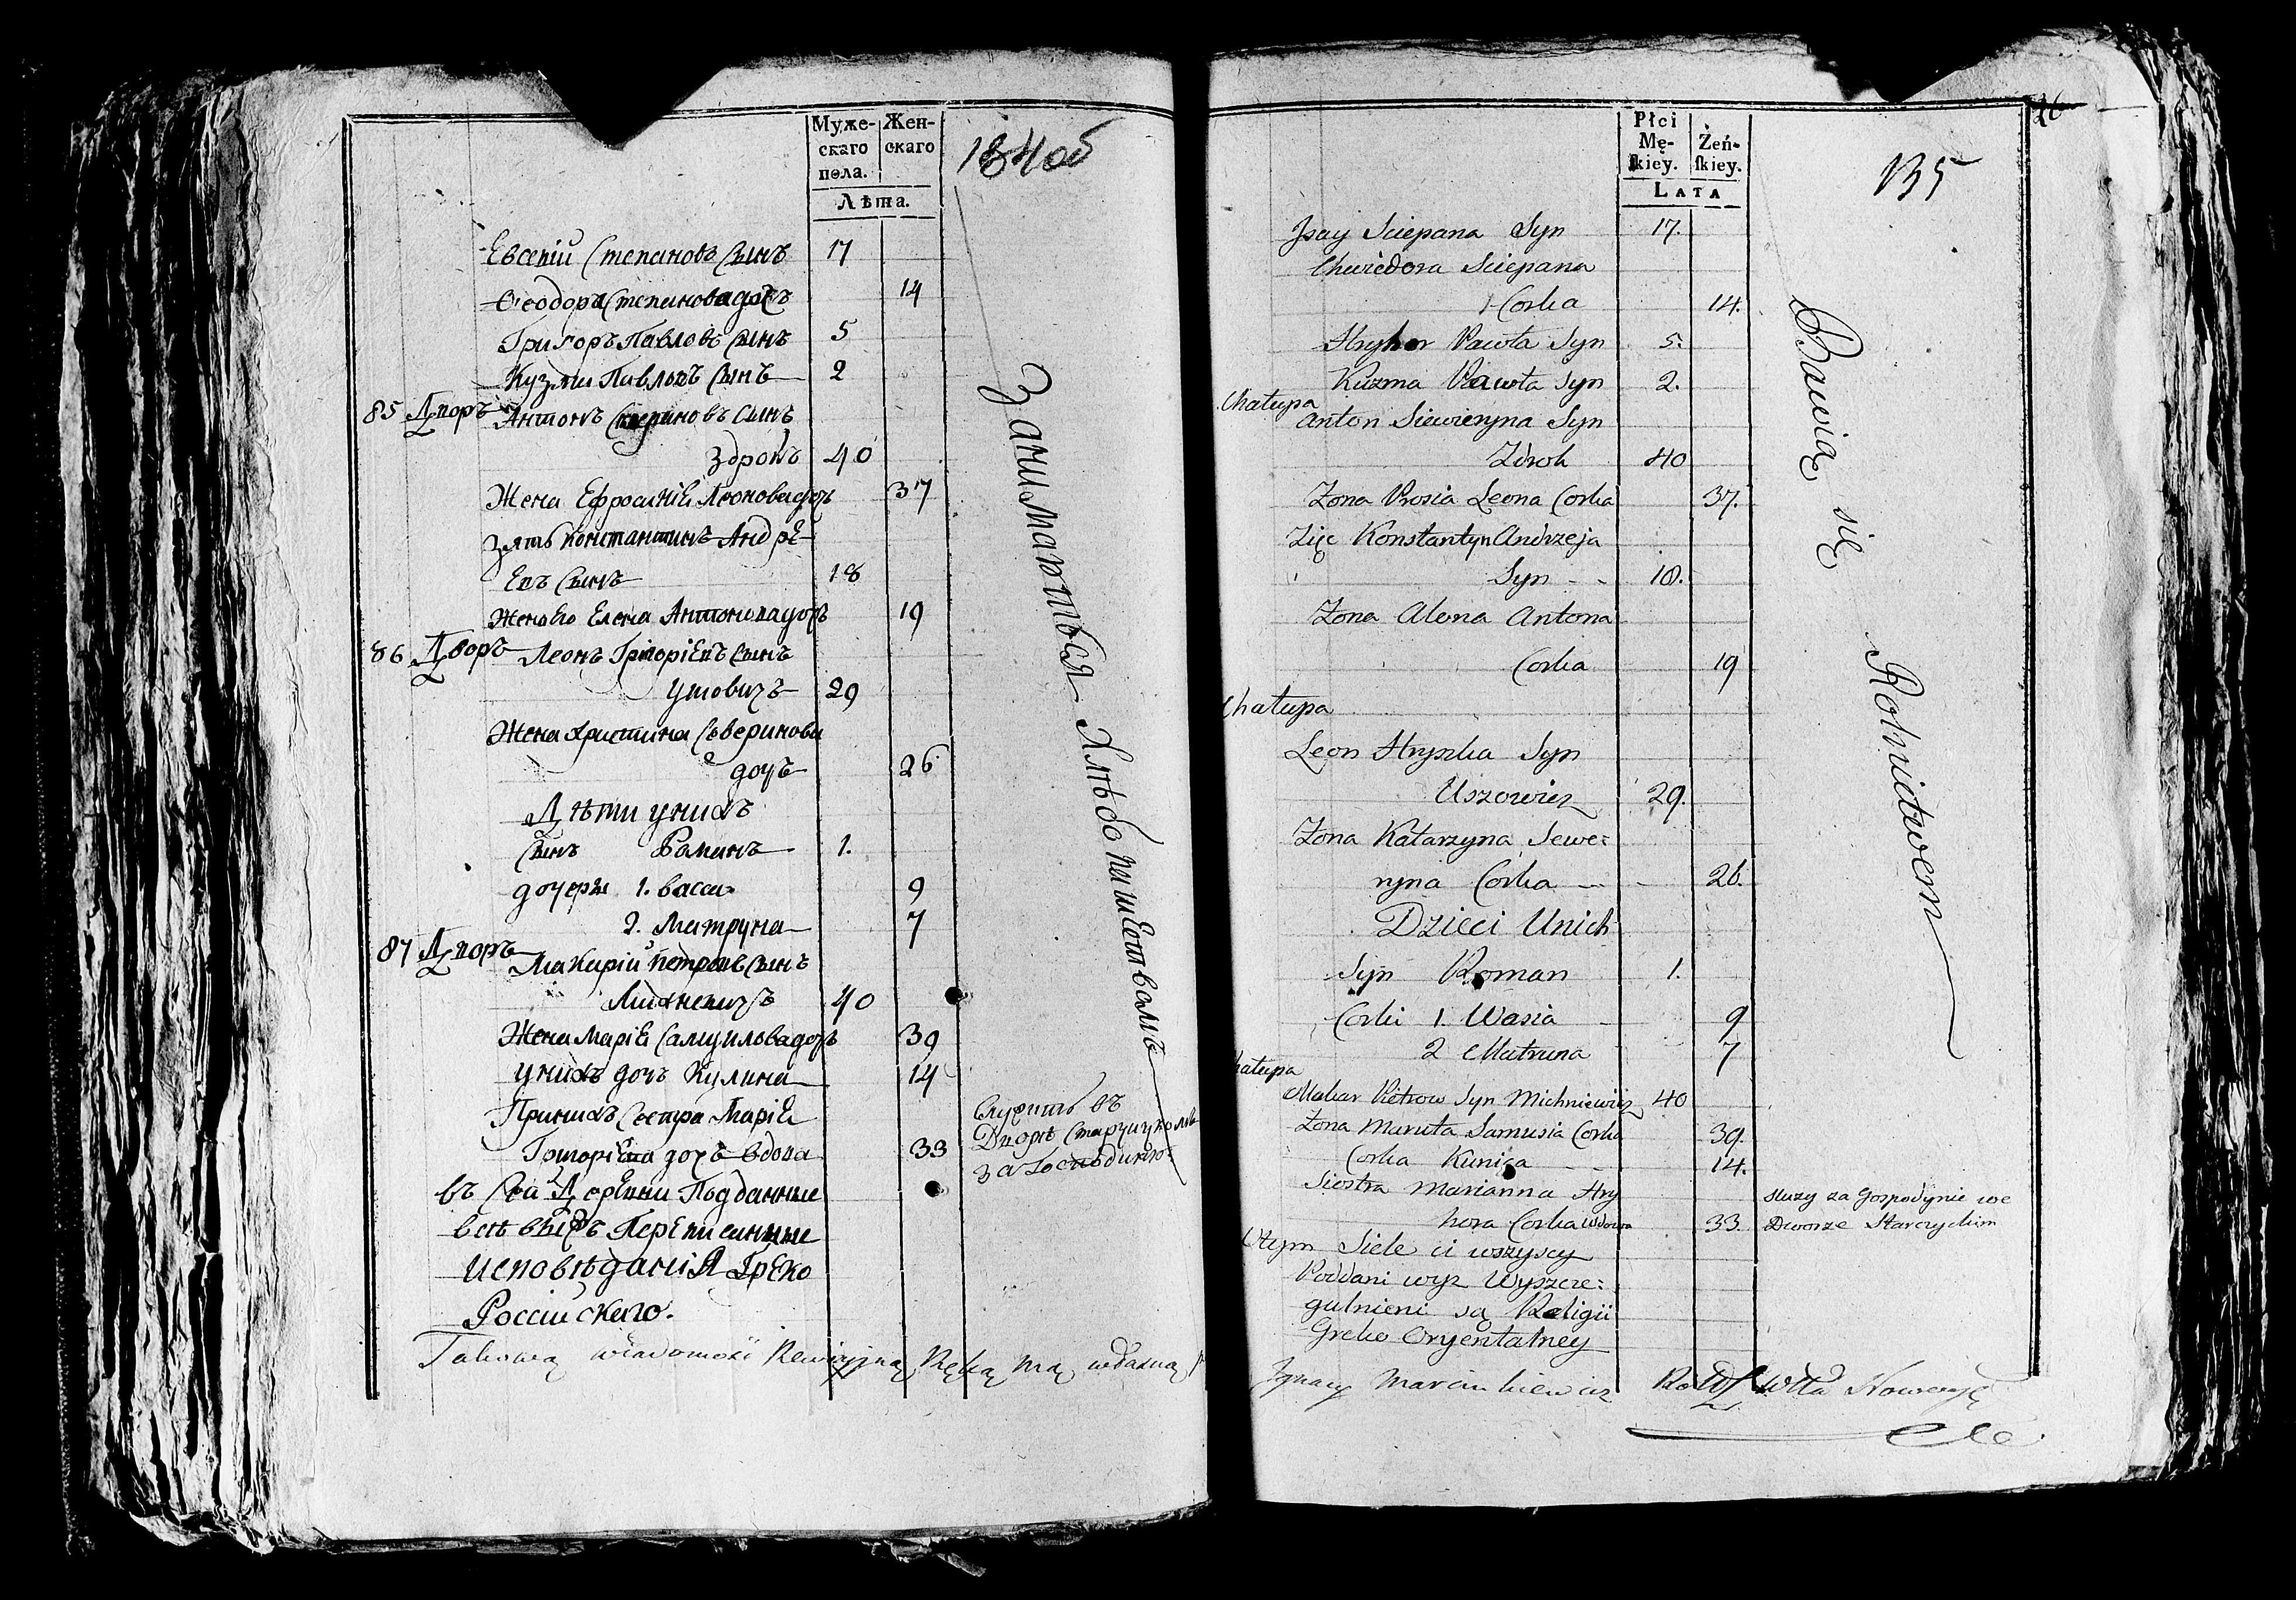 Муже-
скаго
пола.
Жен-
скаго
Лѣта.
134об
Евсѣий Степановъ Сынъ 17
Ѳеодора Степанова дочъ 14
Григоръ Павловъ Сынъ 5
Кузма Павловъ Сынъ 2
85 Дворъ Антонъ Севериновъ Сынъ
Здрокъ 40
Жена Ефросиния Леонова дочъ 37
Зять Константинъ Андрѣ-
евъ Сынъ 18
Жена Его Елена Антонова дочъ 19
86 Дворъ Леонъ Григориевъ Сынъ
Ушовичъ 29
Жена Христина Северинова
дочъ 26
Дѣти у нихъ
Сынъ Романъ 1.
дочери 1. Васса 9
2. Матруна 7
87 Дворъ Макарий Петровъ Сынъ
Михневичъ 40
Жена Мария Самуилова дочъ 39
у нихъ дочъ Кулина 14
При нихъ Сестра Мария
Григориева дочъ вдова 33
въ Сей Деревни Подданные
всѣ въ верхъ Переписанные
исповѣдания Греко
Российскаго.
Занимаються Хлѣбопашествомъ
Служитъ въ
Дворѣ Старчицкомъ
за Господиню
Takową wiadomość Rewizyjną Ręką mą własną
26
Płci
Mę-
skiey.
Żeń-
skiey.
LATA
135
Jsay Sciepana Syn 17.
Chwiedora Sciepana
Corka 14.
Hryhor Pawła Syn 5.
Kuzma Pawła Syn 2.
Chałupa
Anton Siewieryna Syn
Zdrok 40
Żona Prosia Leona Corka 37.
Zięc Konstantyn Andrzeja
Syn - - 18.
Żona Alona Antona
Corka 19
Chałupa
Leon Hryszka Syn
Uszowicz 29.
Żona Katarzyna Sewe:
ryna Corka - - 26.
Dzieci Unich
Syn Roman 1.
Corki 1. Wasia 9
2 Matruna 7
Chałupa
Makar Pietrow Syn Michniewicz 40
Żona Maruta Samusia Corka 39.
Corka Kunica - - 14.
Siostra Marianna Hry
hora Corka wdowa 33
Wtym Siele ci wszyscy
Poddani wyz Wyszcze:
gulnieni są Religii
Greko Oryentalney
Bawią się Rolnictwem
służy za Gospodynie we
Dworze Starczyckim
Ignacy Marcinkiewicz